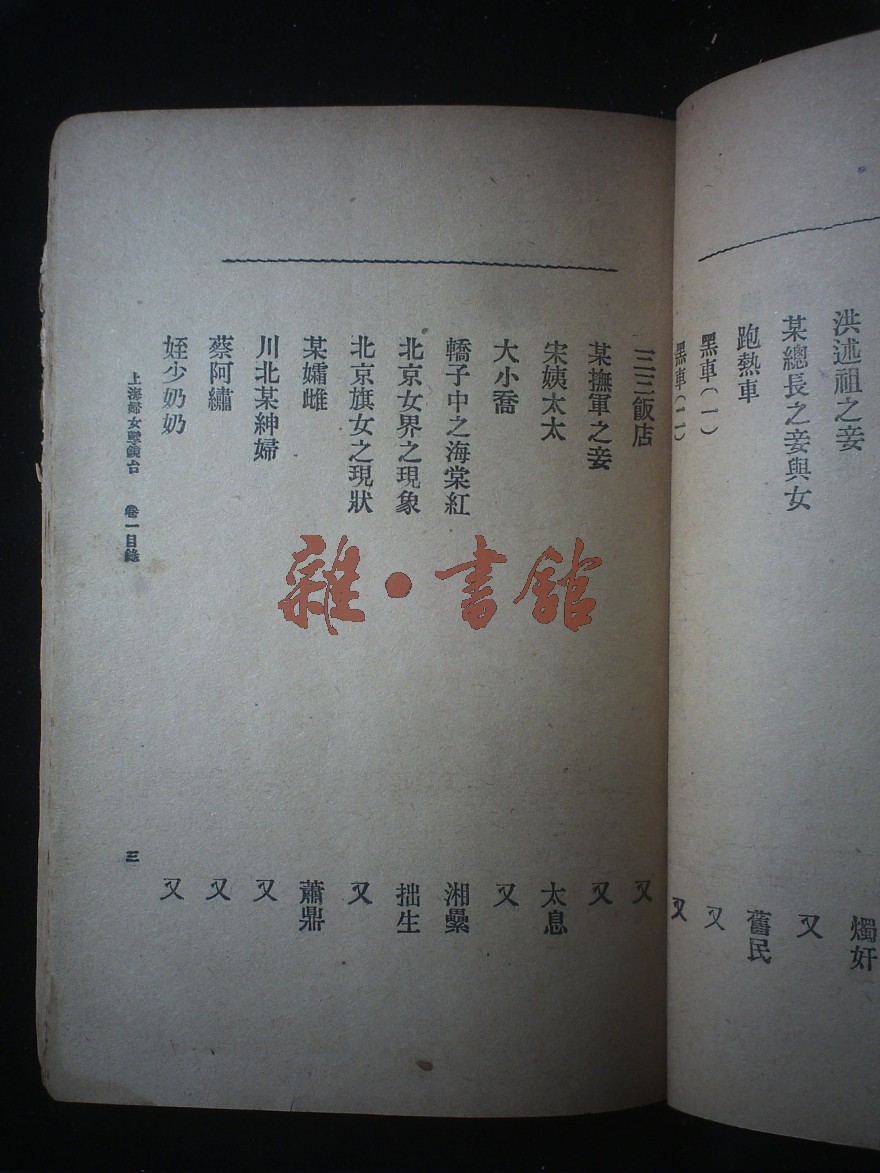 洪述祖之妾 燭奸
某總長之妾與女 又
跑熱車 舊民
黑車(一) 又
黑車(二) 又
三三飯店 又
某撫軍之妾 又
宋姨太太 太息
大小喬 又
轎子中之海棠紅 湘纍
北京女界之現象 拙生
北京旗女之現狀 又
某孀雌 蕭鼎
川北某紳婦 又
蔡阿繡 又
姪少奶奶 又
上海婦女孽鏡台 卷一目錄 三
雜·書館